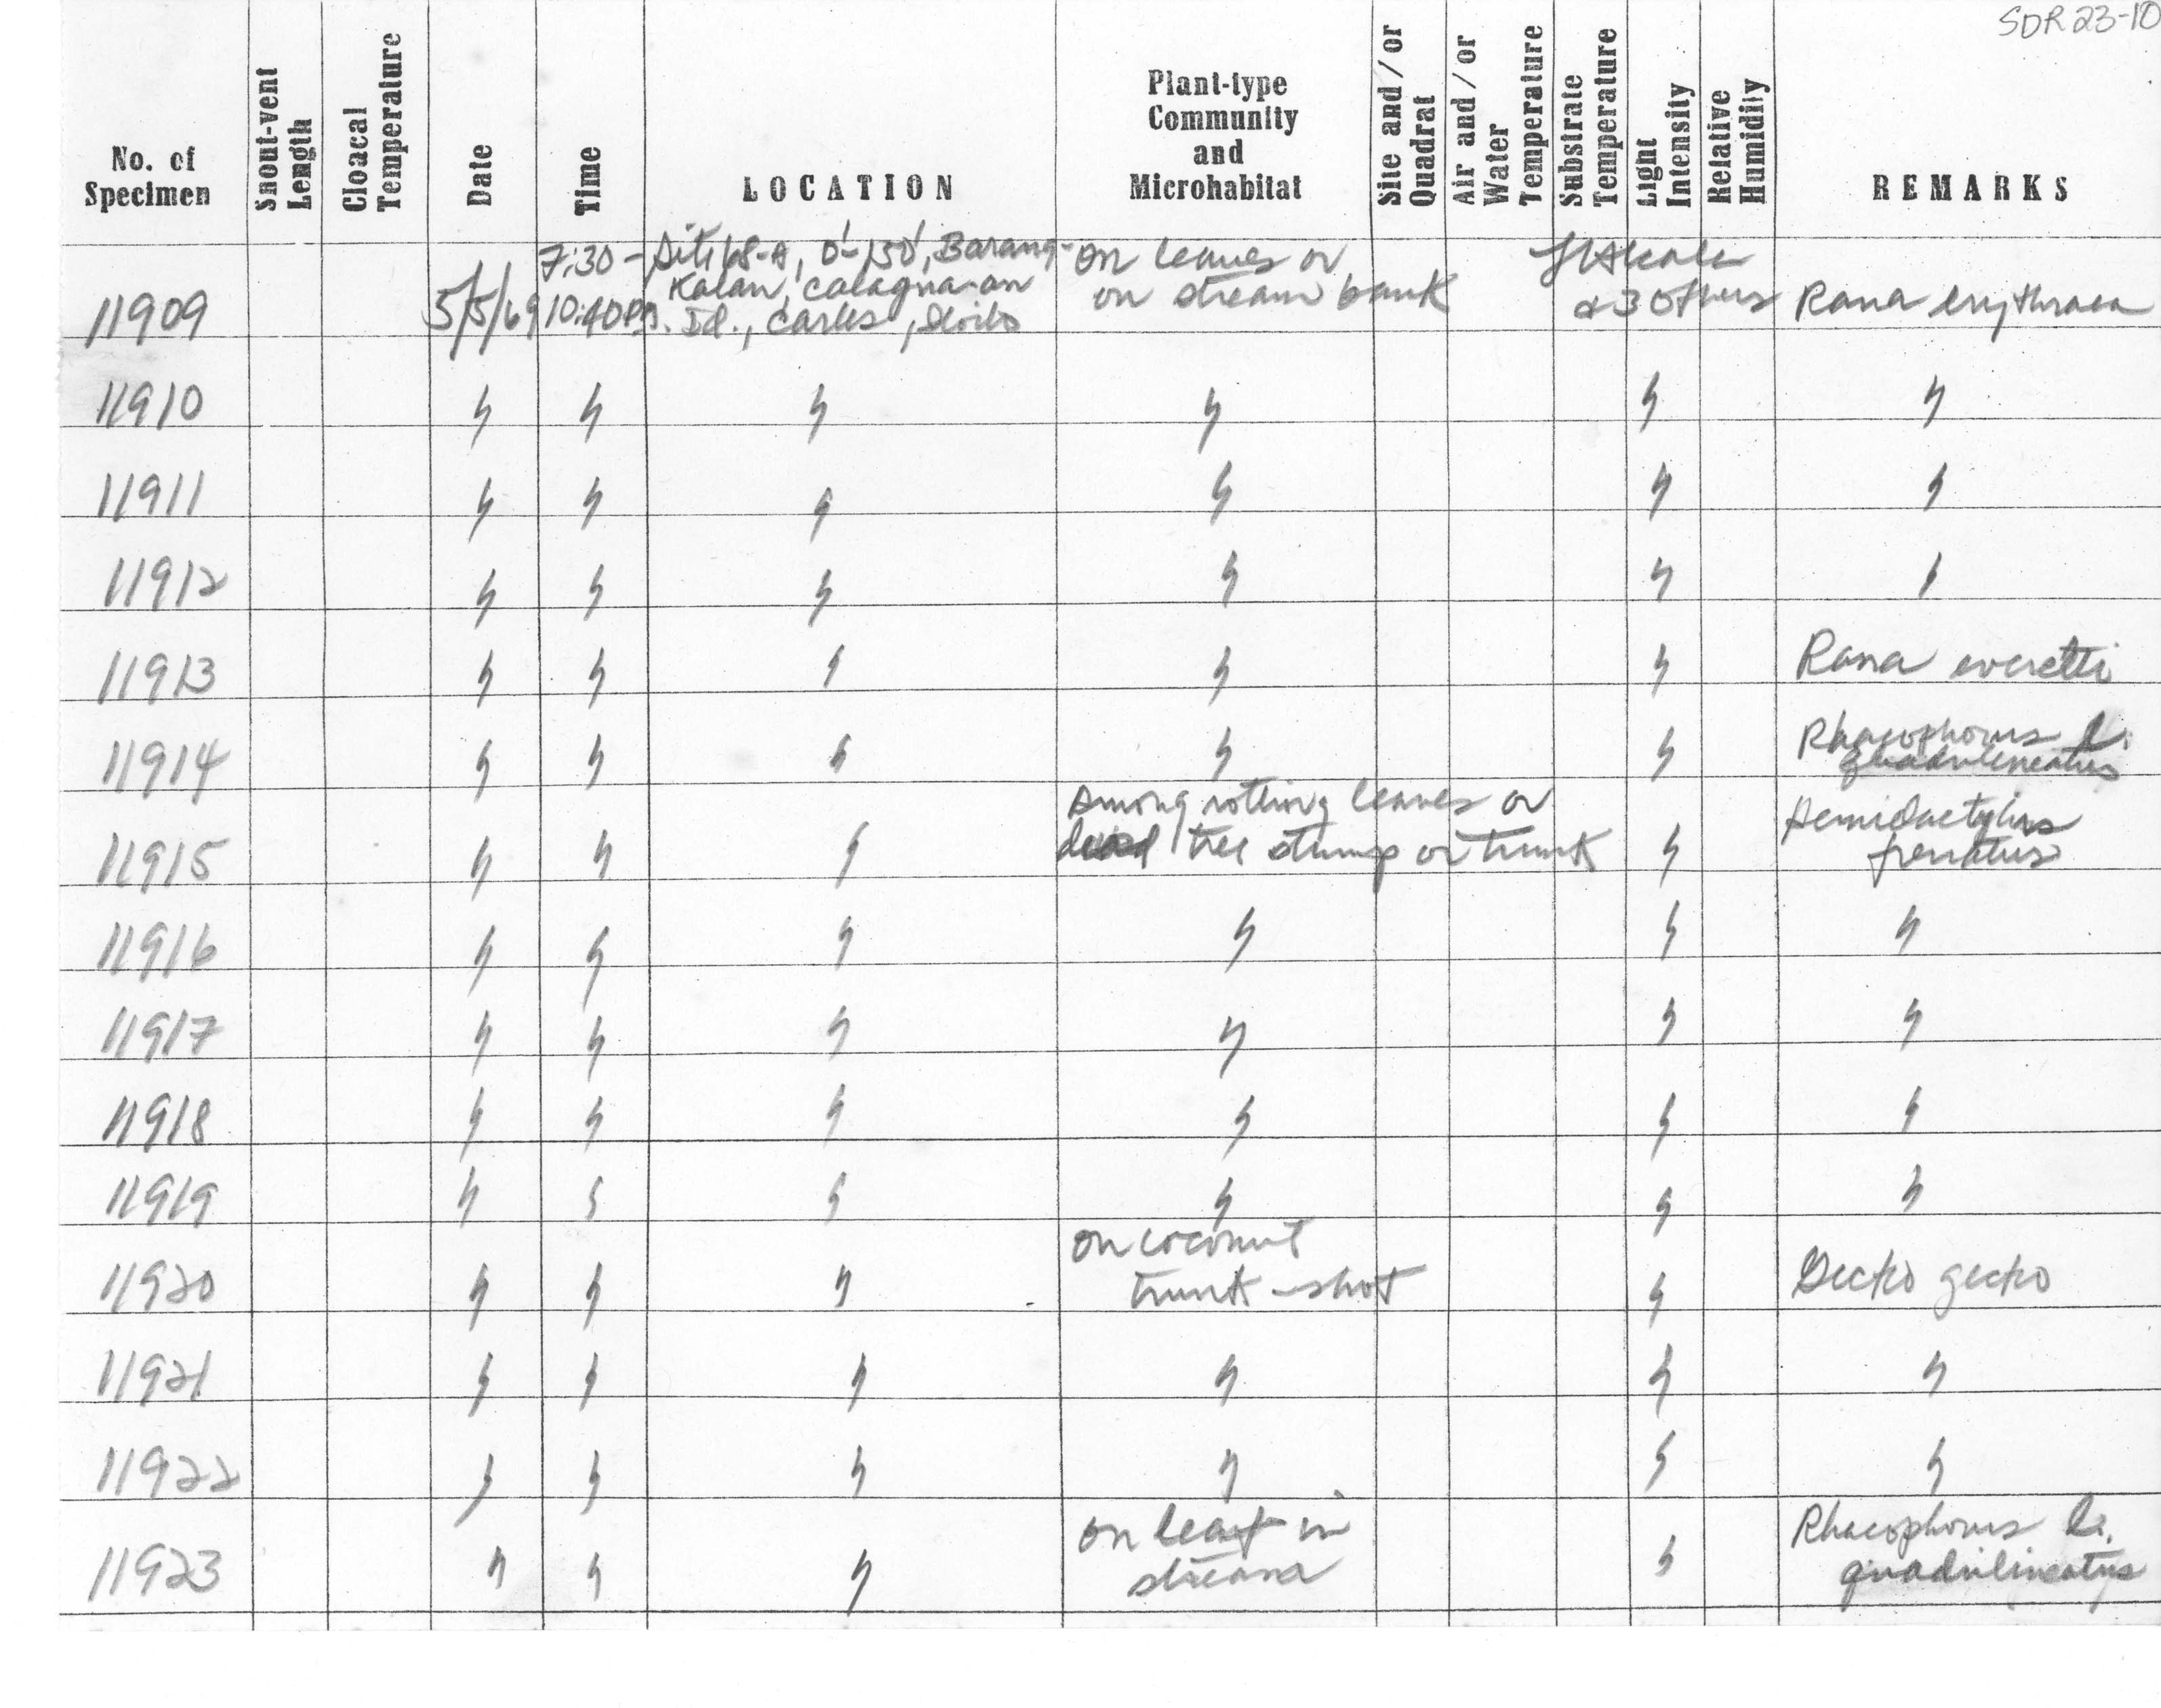 SDR 23-10
No. of Specimen | Snout-vent Length | Cloacal Temperature | Date | Time | LOCATION | Plant-type Community and Microhabitat | Site and/or Quadrat | Air and/or Water Temperature | Substrate Temperature | Light Intensity | Relative Humidity | REMARKS
11909 | 5/5/69 | 7:30- 10:40 | Site 68-A, 0'-150', Barang- Kalan, Calagna-an Id., Carles, Iloilo | on leaves or on stream bank | Alcala & 3 others | Rana erythraea
11910 | " | " | " | " | " | "
11911 | " | " | " | " | " | "
11912 | " | " | " | " | " | "
11913 | " | " | " | " | " | Rana everetti
11914 | " | " | " | " | " | Rhacophorus l. quadrilineatus
11915 | " | " | " | Among rotting leaves or dead tree stump or trunk | " | Hemidactylus frenatus
11916 | " | " | " | " | " | "
11917 | " | " | " | " | " | "
11918 | " | " | " | " | " | "
11919 | " | " | " | " | " | "
11920 | " | " | " | on coconut trunk - shot | " | Gecko gecko
11921 | " | " | " | " | " | "
11922 | " | " | " | " | " | "
11923 | " | " | " | on leaf in stream | " | Rhacophorus l. quadrilineatus